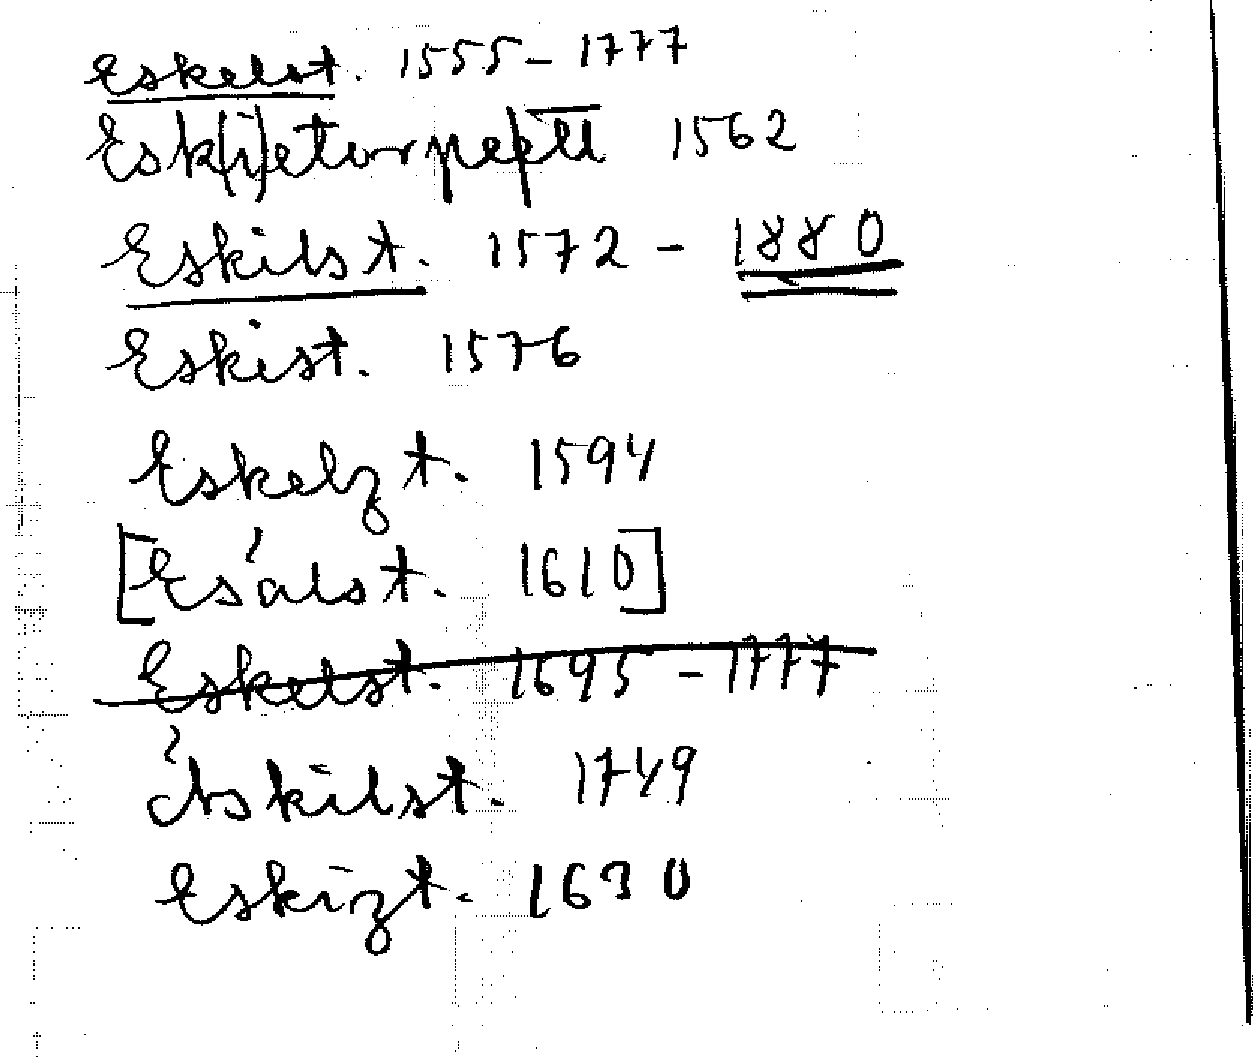 Eskelst. 1555-1777
Esk(i)etorp 1562
Eskilst. 1572 - 1880
Eskist. 1576
Eskelzt. 1594
[Esålst. 1610]
Eskelst. 1695-1777
Åskilst. 1749
Eskizt. 1630